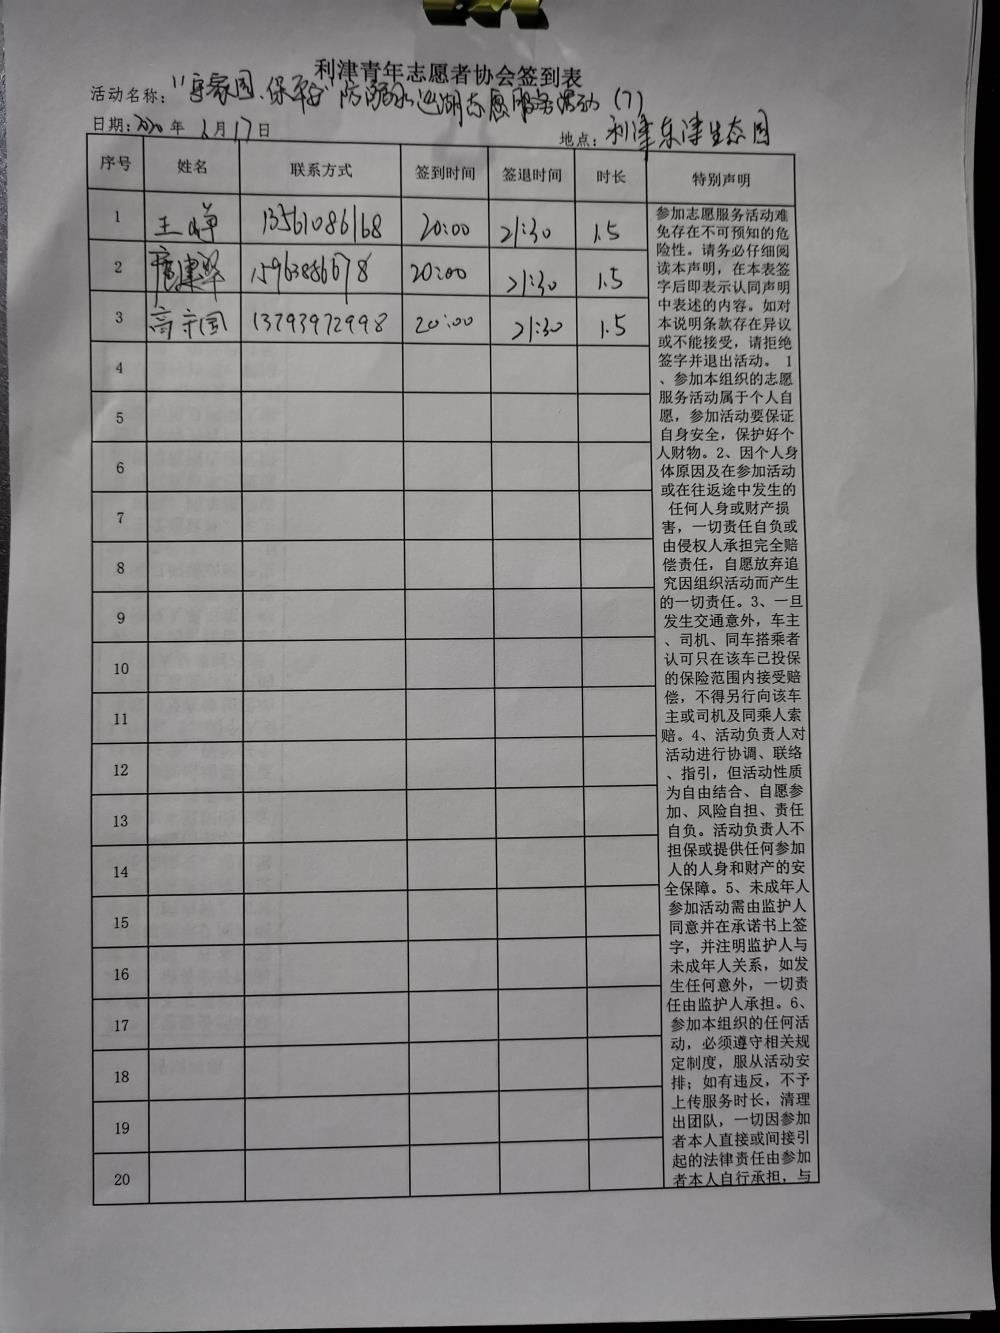 利津青年志愿者协会签到表
活动名称：“守家园、保平安”防溺水巡湖志愿服务活动（7）
日期：2020年6月17日 地点：利津东津生态园
序号 姓名 联系方式 签到时间 签退时间 时长 特别声明
1 王 13561086168 20:00 21:30 1.5
2 15963886678 20:00 21:30 1.5
3 高守国 13793972998 20:00 21:30 1.5
4
5
6
7
8
9
10
11
12
13
14
15
16
17
18
19
20
参加志愿服务活动难
免存在不可预知的危
险性。请务必仔细阅
读本声明，在本表签
字后即表示认同声明
中表述的内容。如对
本说明条款存在异议
或不能接受，请拒绝
签字并退出活动。 1
、参加本组织的志愿
服务活动属于个人自
愿，参加活动要保证
自身安全，保护好个
人财物。2、因个人身
体原因及在参加活动
或在往返途中发生的
任何人身或财产损
害，一切责任自负或
由侵权人承担完全赔
偿责任，自愿放弃追
究因组织活动而产生
的一切责任。3、一旦
发生交通意外，车主
、司机、同车搭乘者
认可只在该车已投保
的保险范围内接受赔
偿，不得另行向该车
主或司机及同乘人索
赔。4、活动负责人对
活动进行协调、联络
、指引，但活动性质
为自由结合、自愿参
加、风险自担、责任
自负。活动负责人不
担保或提供任何参加
人的人身和财产的安
全保障。5、未成年人
参加活动需由监护人
同意并在承诺书上签
字，并注明监护人与
未成年人关系，如发
生任何意外，一切责
任由监护人承担。6、
参加本组织的任何活
动，必须遵守相关规
定制度，服从活动安
排；如有违反，不予
上传服务时长，清理
出团队，一切因参加
者本人直接或间接引
起的法律责任由参加
者本人自行承担，与